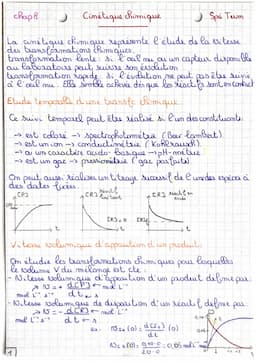 chap 8 Cinétique chimique Spé Term
La cinétique chimique représente l'étude de la vitesse
des transformations chimiques.
transformation lente: si l'œil nu ou un capteur disponible
au laboratoire peut suivre son évolution
transformation rapide: si l'évolution ne peut pas être suivie
à l'œil nu. Elle semble achevée dès que les réactifs sont en contact
Etude temporelle d'une transfo chimique
Ce suivi temporel peut être réalisé si l'un des constituants:
→ est coloré → spectrophotométrie (Beer Lambert)
→ est un ion → conductimétrie (Kohlrausch)
→ a un caractère acido-basique → pH-métrie
→ est un gaz → pressiométrie (gaz parfaits)
On peut aussi réaliser un titrage successif de l'une des espèces à
des dates fixées.
[P] [R] réactif limitant [R] réactif en excès
t t t
Vitesse volumique d'apparition d'un produit:
On étudie les transformations chimiques pour laquelles
le volume V du mélange est cte:
- Vitesse volumique d'apparition d'un produit définie par:
v = d[P] ← mol L⁻¹
mol L⁻¹ s⁻¹ dt ← s
- Vitesse volumique de disparition d'un réactif définie par:
v = - d[R] ← mol L⁻¹
mol L⁻¹ s⁻¹ dt ← s
1